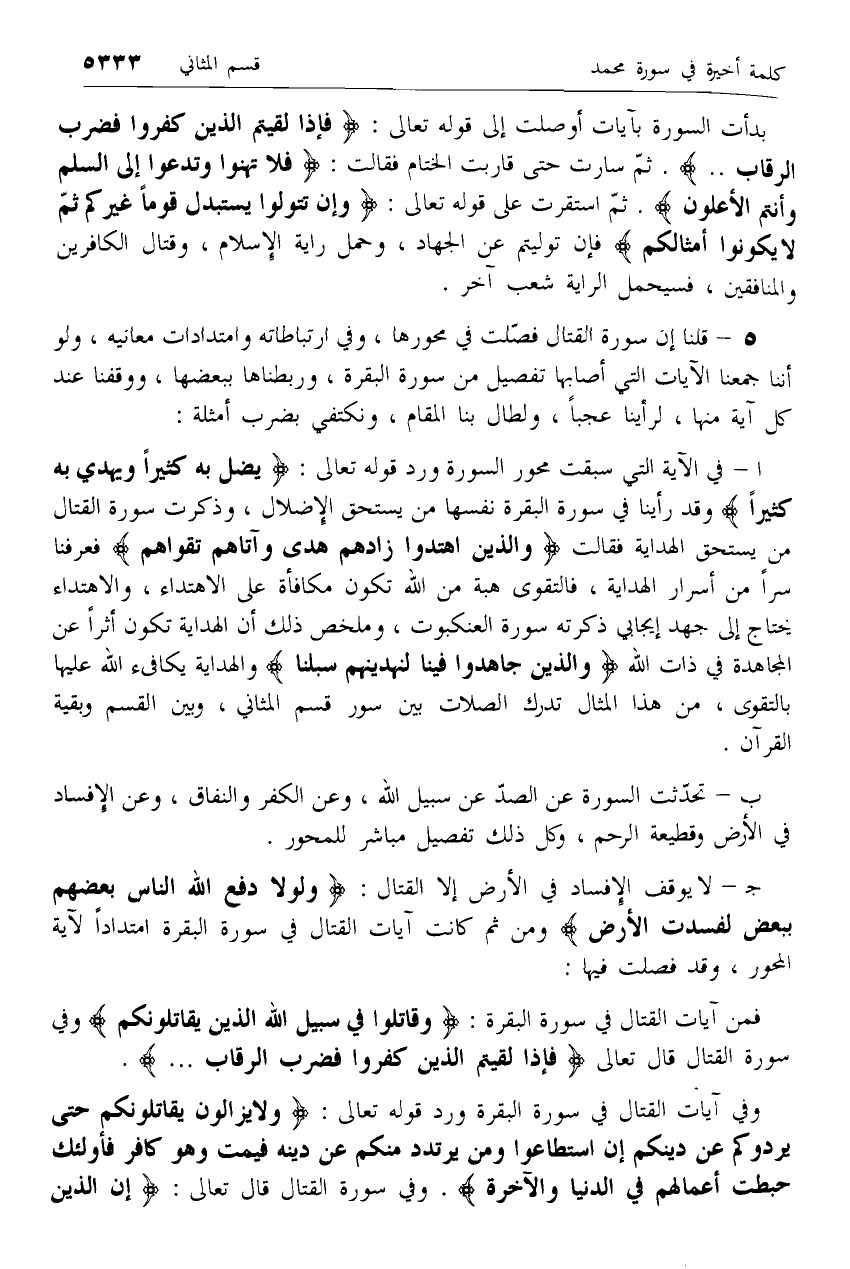 كلمة أخيرة في سورة محمد قسم المثاني ٥٣٣٣
بدأت السورة بآيات أوصلت إلى قوله تعالى : ﴿ فإذا لقيتم الذين كفروا فضرب
الرقاب .. ﴾ . ثمّ سارت حتى قاربت الختام فقالت : ﴿ فلا تهنوا وتدعوا إلى السلم
وأنتم الأعلون ﴾ . ثمّ استقرت على قوله تعالى : ﴿ وإن تتولوا يستبدل قوماً غيركم ثمّ
لا يكونوا أمثالكم ﴾ فإن توليتم عن الجهاد ، وحمل راية الإسلام ، وقتال الكافرين
والمنافقين ، فسيحمل الراية شعب آخر .
٥ – قلنا إن سورة القتال فصّلت في محورها ، وفي ارتباطاته وامتدادات معانيه ، ولو
أننا جمعنا الآيات التي أصابها تفصيل من سورة البقرة ، وربطناها ببعضها ، ووقفنا عند
كل آية منها ، لرأينا عجباً ، ولطال بنا المقام ، ونكتفي بضرب أمثلة :
ا – في الآية التي سبقت محور السورة ورد قوله تعالى : ﴿ يضل به كثيراً ويهدي به
كثيراً ﴾ وقد رأينا في سورة البقرة نفسها من يستحق الإضلال ، وذكرت سورة القتال
من يستحق الهداية فقالت ﴿ والذين اهتدوا زادهم هدى وآتاهم تقواهم ﴾ فعرفنا
سراً من أسرار الهداية ، فالتقوى هبة من الله تكون مكافأة على الاهتداء ، والاهتداء
يحتاج إلى جهد إيجابي ذكرته سورة العنكبوت ، وملخص ذلك أن الهداية تكون أثراً عن
المجاهدة في ذات الله ﴿ والذين جاهدوا فينا لنهدينهم سبلنا ﴾ والهداية يكافىء الله عليها
بالتقوى ، من هذا المثال تدرك الصلات بين سور قسم المثاني ، وبين القسم وبقية
القرآن .
ب – تحدّثت السورة عن الصدّ عن سبيل الله ، وعن الكفر والنفاق ، وعن الإفساد
في الأرض وقطيعة الرحم ، وكل ذلك تفصيل مباشر للمحور .
جـ – لا يوقف الإفساد في الأرض إلا القتال : ﴿ ولولا دفع الله الناس بعضهم
ببعض لفسدت الأرض ﴾ ومن ثم كانت آيات القتال في سورة البقرة امتداداً لآية
المحور ، وقد فصلت فيها :
فمن آيات القتال في سورة البقرة : ﴿ وقاتلوا في سبيل الله الذين يقاتلونكم ﴾ وفي
سورة القتال قال تعالى ﴿ فإذا لقيتم الذين كفروا فضرب الرقاب ... ﴾ .
وفي آيات القتال في سورة البقرة ورد قوله تعالى : ﴿ ولا يزالون يقاتلونكم حتى
يردوكم عن دينكم إن استطاعوا ومن يرتدد منكم عن دينه فيمت وهو كافر فأولئك
حبطت أعمالهم في الدنيا والآخرة ﴾ . وفي سورة القتال قال تعالى : ﴿ إن الذين